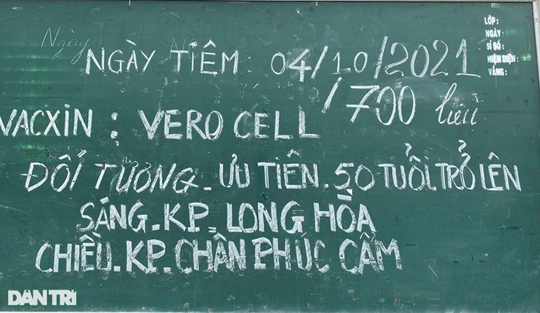 Ngày
NGÀY TIÊM: 04/10/2021
VACXIN: VERO CELL /700 liều
ĐỐI TƯỢNG. ƯU TIÊN. 50 TUỔI TRỞ LÊN
SÁNG. KP. LONG HÒA
CHIỀU. KP. CHÂN PHÚC CẨM
LỚP:
NGÀY:
SĨ SỐ:
HIỆN DIỆN:
VẮNG:
DÂN TRÍ